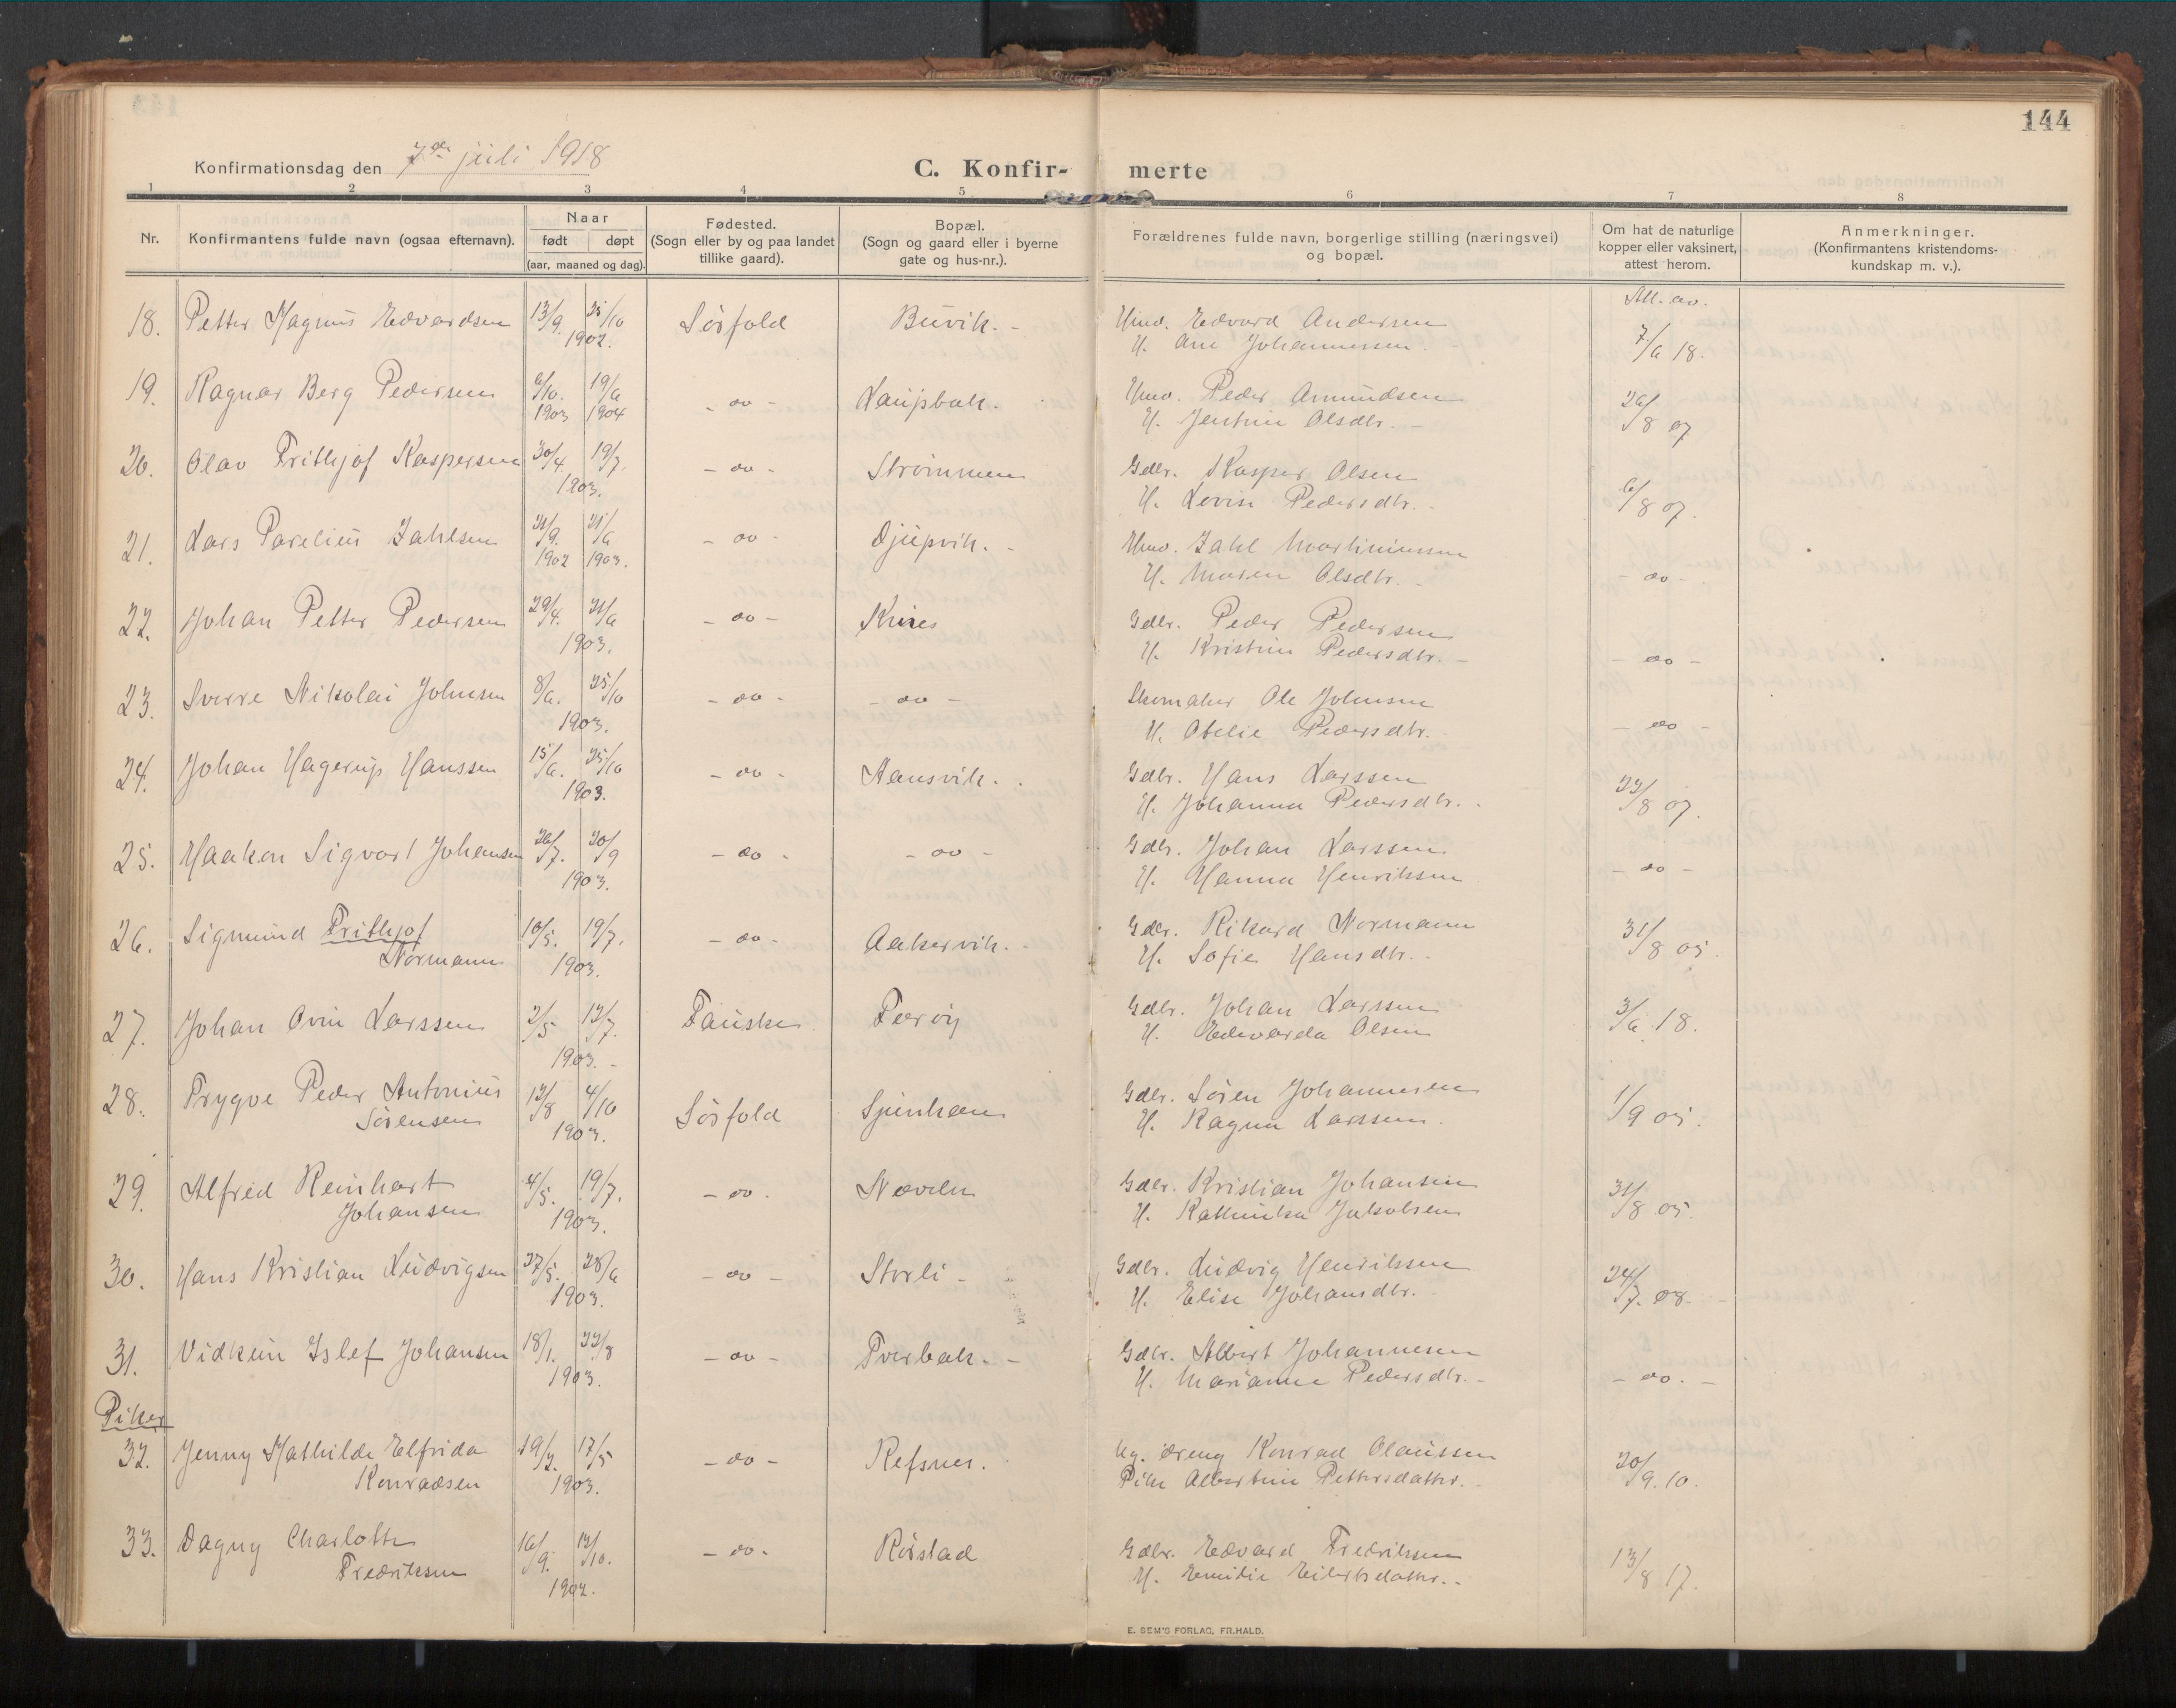 144
Konfirmationsdag den 7de juli 1918
C. Konfir- merte
1 2 3 4 5 6 7 8
Nr.
Konfirmantens fulde navn (ogsaa efternavn).
Naar
født døpt
(aar, maaned og dag).
Fødested.
(Sogn eller by og paa landet
tillike gaard).
Bopæl.
(Sogn og gaard eller i byerne
gate og hus-nr.).
Forældrenes fulde navn, borgerlige stilling (næringsvei)
og bopæl.
Om hat de naturlige
kopper eller vaksinert,
attest herom.
Anmerkninger.
(Konfirmantens kristendoms-
kundskap m. v.).
18. Petter Magnus Edvardsen 13/9. 25/10 Sørfold Buvik. - Hmd. Edvard Andersen Att. av.
1902. H. Ane Johannessen. 7/6 18.
19. Ragnar Berg Pedersen 6/10. 19/6 - do - Laupbak. Hmd. Peder Amundsen 26/8 07
1903 1904 H. Jentine Olsdtr. -
20. Olav Frithjof Kaspersen 30/4. 19/7. - do - Strømmen Gdbr. Kasper Olsen
1903. H. Lovise Pedersdtr. - 6/8 07.
21. Lars Parelius Zahlsen 21/9. 21/6 - do - Djupvik. - Hmd. Zahl Martiniussen
1902 1903. H. Maren Olsdtr. - - do -
22. Johan Petter Pedersen 29/4. 21/6 - do - Knes Gdbr. Peder Pedersen
1903. H. Kristine Pedersdtr. - - do -
23. Sverre Nikolai Johnsen 8/6. 25/10 - do - - do - Skomaker Ole Johnsen
1903. H. Obelie Pedersdtr. - - do -
24. Johan Hagerup Hanssen 15/6. 25/10 - do - Hansvik. . Gdbr. Hans Larssen
1903. H. Johanna Pedersdtr. - 22/8 07.
25. Haakon Sigvart Johansen 26/7. 20/9 - do - - do - Gdbr. Johan Larssen
1903. H. Hanna Henriksen - do -
26. Sigmund Frithjof 10/5. 19/7. - do - Aakervik. - Gdbr. Rikard Normann 31/8 05.
Normann 1903. H. Sofie Hansdtr. -
27. Johan Ovin Larssen 2/5 12/7. Fauske Færøy Gdbr. Johan Larssen 3/6 18.
1903. - H. Edvarda Olsen
28. Trygve Peder Antonius 12/8 4/10 Sørfold Gdbr. Søren Johannesen
Sørensen 1903. H. Ragna Larssen. 1/9 05.
29. Alfred Reinhart 4/5. 19/7. - do - Næveln Gdbr. Kristian Johansen 31/8 05.
Johansen 1903. H. Kathinka Jakobsen
30. Hans Kristian Ludvigsen 27/5. 28/6 - do - Storli - Gdbr. Ludvig Henriksen
1903. H. Elise Johansdtr. - 24/7. 08. -
31. Vidkun Islef Johansen 18/1. 22/8 - do - Tverbak. - Gdbr. Albert Johannesen
1903. H. Marianne Pedersdtr. - - do. -
Piker
32. Jenny Mathilde Elfrida 19/2. 17/5 - do - Refsnes. Ug. dreng Konrad Olaussen
Konradsen 1903. Pike Albertine Pettersdatter. - 20/9. 10.
33. Dagny Charlotte 16/9. 12/10. - do - Røstad Gdbr. Edvard Fredriksen
Fredriksen 1902. H. Emilie Eilertsdatter. - 13/8 17.
E. SEM'S FORLAG, FR.HALD.